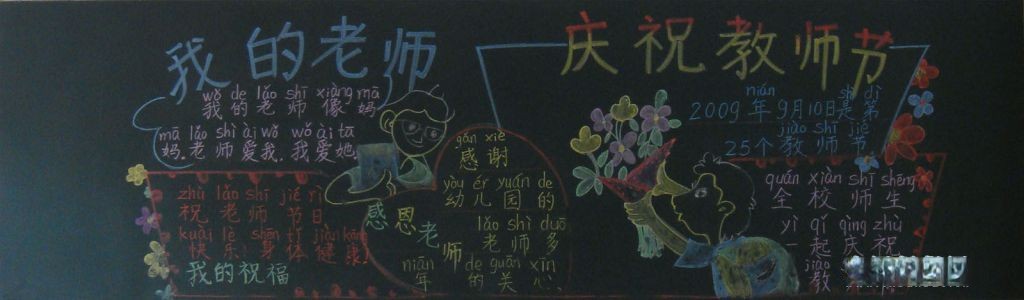 我的老师
wǒ de lǎo shī xiàng mā
我的老师像妈
mā lǎo shī ài wǒ wǒ ài tā
妈.老师爱我.我爱她
zhù lǎo shī jié rì
祝老师节日
kuài lè shēn tǐ jiàn kāng
快乐!身体健康!
我的祝福
感恩老师
gǎn xiè
感谢
yòu ér yuán de
幼儿园的
lǎo shī duō
老师多
nián de guān xīn
年的关心
庆祝教师节
nián shì dì
2009年9月10日是第
jiào shī jié
25个教师节
quán xiào shī shēng
全校师生
yì qǐ qìng zhù
一起庆祝
jiào
教